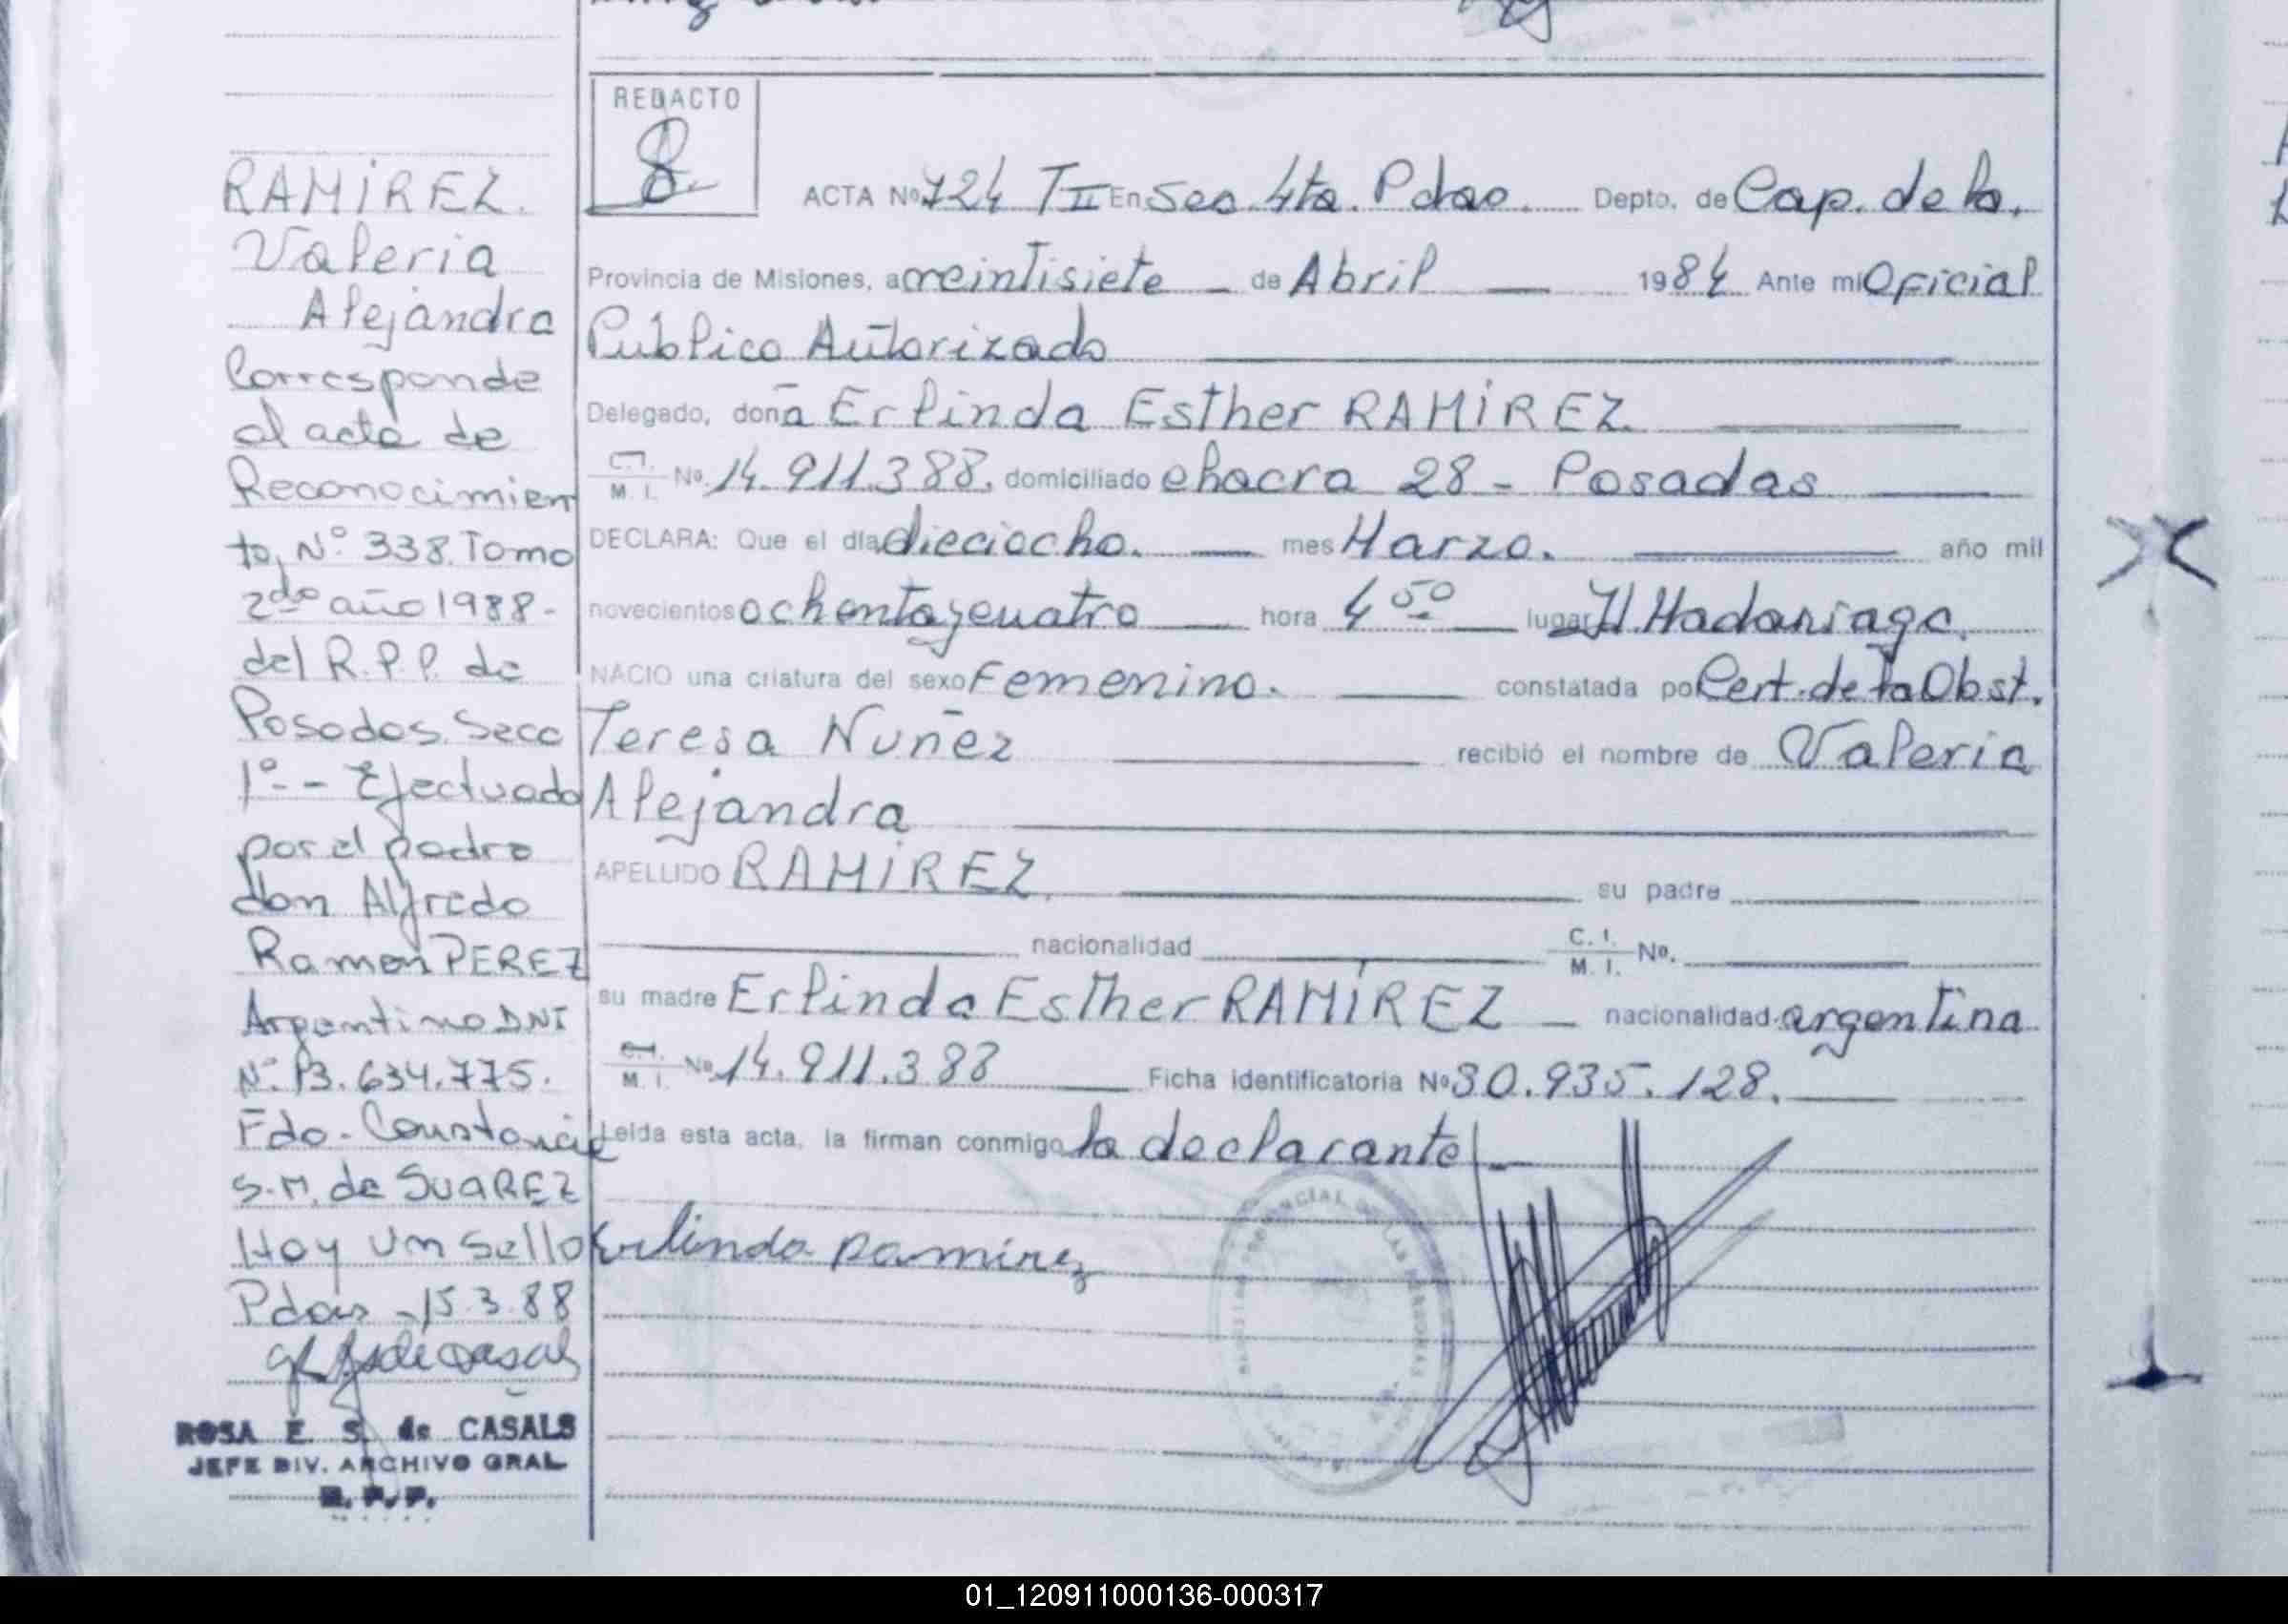 RAMÍREZ.
Valeria
Alejandra
Corresponde
al acta de
Reconocimien
to, Nº 338. Tomo
2do año 1988-
del R.P.P. de
Posadas. Secc
1º - Efectuado
por el padre
don Alfredo
Ramon PEREZ
Argentino DNI
Nº 13.634.775.
Fdo. Constancia
S.M. de SUAREZ
Hay un sello
Pdas - 15.3.88
ROSA E. S. de CASALS
JEFE DIV. ARCHIVO GRAL
R. P. P.
REDACTO
ACTA Nº 724 T II En Sec 4ta. Pdas. Depto. de Cap. de la.
Provincia de Misiones, a veintisiete de Abril 1984 Ante mi Oficial
Público Autorizado
Delegado, doña Erlinda Esther RAMÍREZ.
C.I. M. I. No. 14.911.388. domiciliado chacra 28 - Posadas
DECLARA: Que el día dieciocho. mes Marzo. año mil
novecientos ochenta y cuatro hora 4 50 lugar H. Madariaga.
NACIO una criatura del sexo Femenino. constatada por Cert. de la Obst.
Teresa Nuñez recibió el nombre de Valeria
Alejandra
APELLIDO RAMÍREZ. su padre
nacionalidad C. I. M. I. No.
su madre Erlinda Esther RAMÍREZ nacionalidad argentina
C.I. M. I. No. 14.911.388 Ficha identificatoria Nº 30.935.128.
Leída esta acta, la firman conmigo la declarante
Erlinda Ramirez
01_120911000136-000317